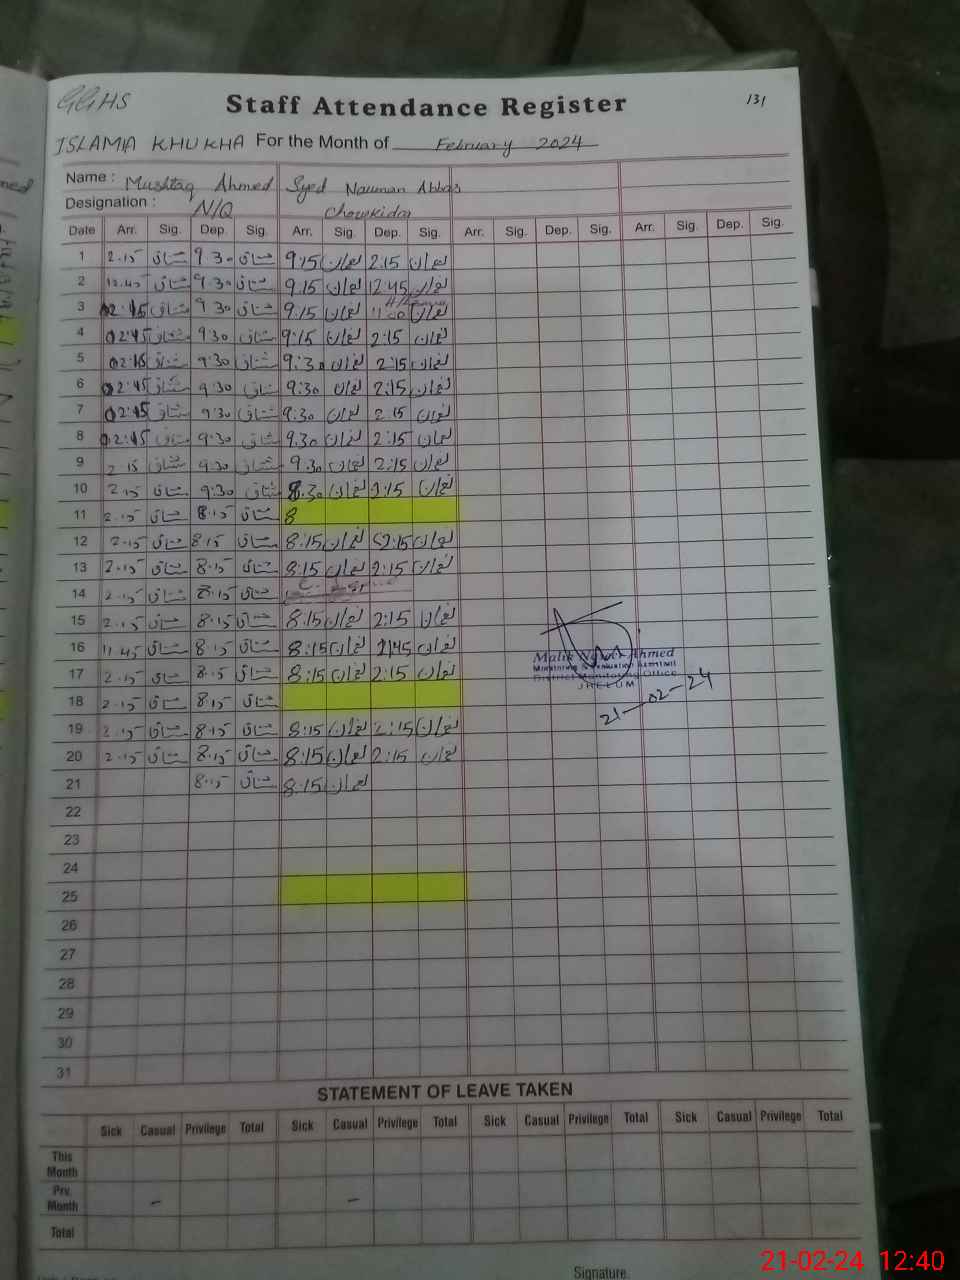 GGHS Staff Attendance Register 131
ISLAMIA KHUKHA For the Month of February 2024
Name : Mushtaq Ahmed Syed Nauman Abbas
Designation : N/Q Chowkidar
Date Arr. Sig. Dep. Sig. Arr. Sig. Dep. Sig. Arr. Sig. Dep. Sig. Arr. Sig. Dep. Sig.
1 2.15 مشتاق 9.30 مشتاق 9:15 نعمان 2:15 نعمان
2 12.45 مشتاق 9.30 مشتاق 9.15 نعمان 12:45 نعمان
3 02:45 مشتاق 9.30 مشتاق 9:15 نعمان 11:00 نعمان
4 02:45 مشتاق 9.30 مشتاق 9:15 نعمان 2:15 نعمان
5 02:15 مشتاق 9:30 مشتاق 9:30 نعمان 2:15 نعمان
6 02:45 مشتاق 9:30 مشتاق 9:30 نعمان 2:15 نعمان
7 02:45 مشتاق 9:30 مشتاق 9:30 نعمان 2:15 نعمان
8 02:45 مشتاق 9:30 مشتاق 9.30 نعمان 2:15 نعمان
9 2 15 مشتاق 9:30 مشتاق 9.30 نعمان 2:15 نعمان
10 2.15 مشتاق 9:30 مشتاق 8.30 نعمان 2:15 نعمان
11 2.15 مشتاق 8.15 مشتاق 8
12 2.15 مشتاق 8.15 مشتاق 8:15 نعمان 2:15 نعمان
13 2.15 مشتاق 8.15 مشتاق 8:15 نعمان 2:15 نعمان
14 2.15 مشتاق 8.15 مشتاق
15 2.15 مشتاق 8.15 مشتاق 8:15 نعمان 2:15 نعمان
16 11.45 مشتاق 8.15 مشتاق 8:15 نعمان نعمان
17 2.15 مشتاق 8.15 مشتاق 8:15 نعمان 2:15 نعمان
Malik Ahmed
Monitoring & Evaluation Assistant
District Monitoring Office
JHELUM
21-02-24
18 2.15 مشتاق 8.15 مشتاق
19 2.15 مشتاق 8.15 مشتاق 8:15 نعمان 2:15 نعمان
20 2.15 مشتاق 8.15 مشتاق 8:15 نعمان 2:15 نعمان
21 8.15 مشتاق 8:15 نعمان
22
23
24
25
26
27
28
29
30
31
STATEMENT OF LEAVE TAKEN
Sick Casual Privilege Total Sick Casual Privilege Total Sick Casual Privilege Total Sick Casual Privilege Total
This Month
Prv. Month – –
Total
Signature
21-02-24 12:40